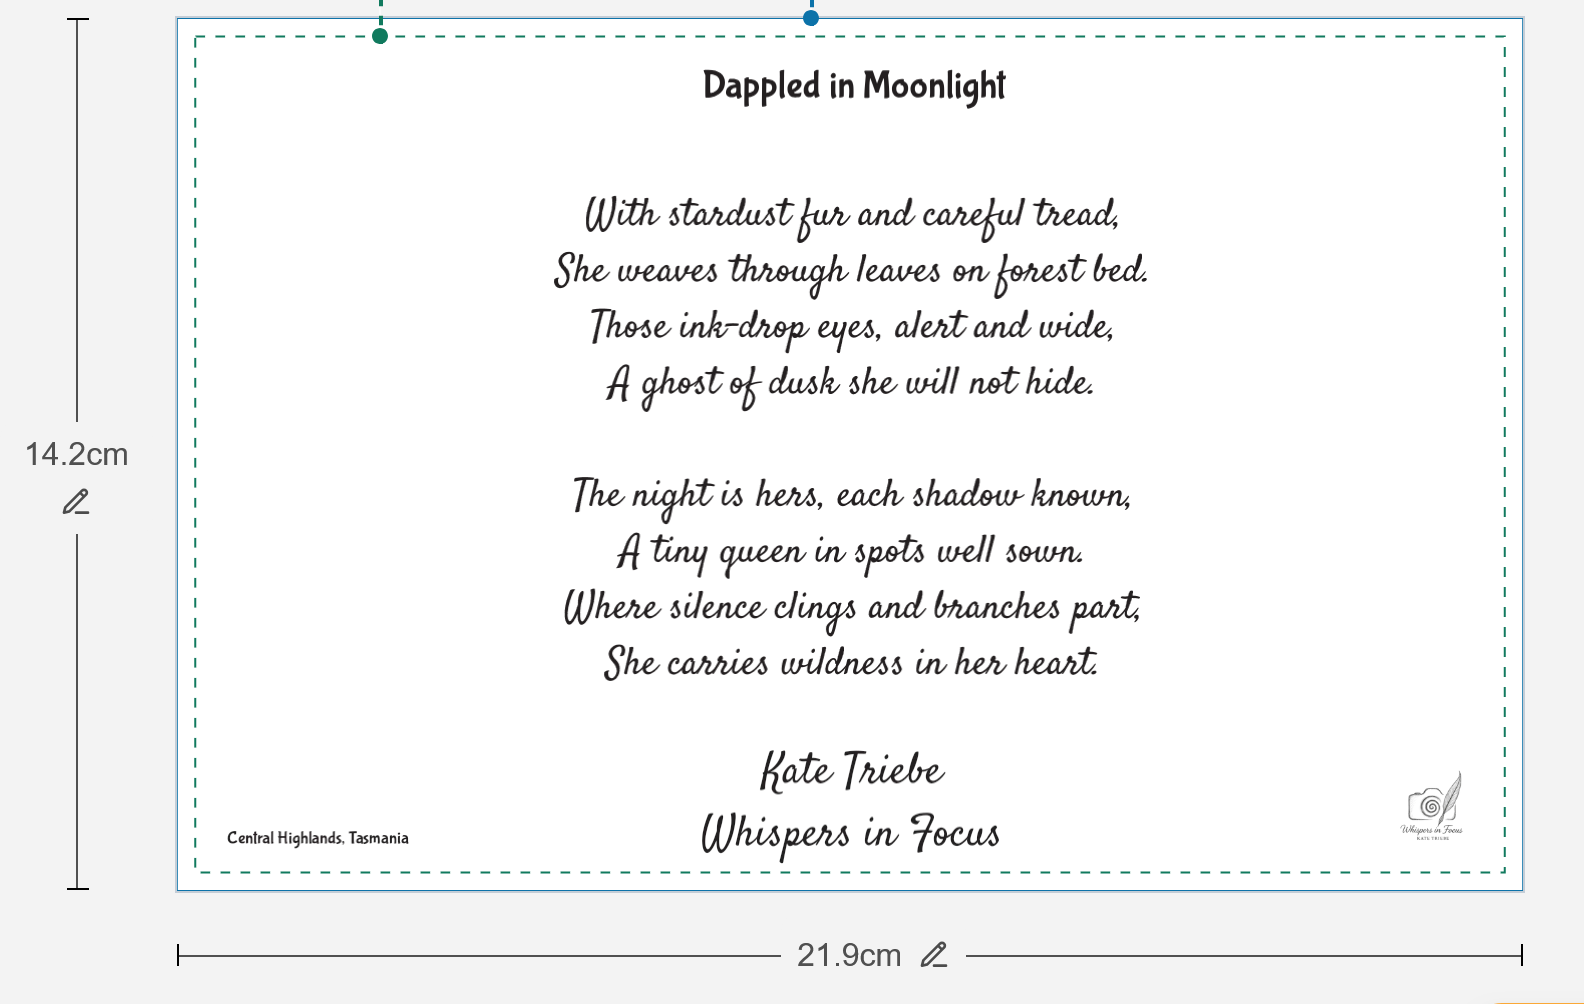 Dappled in Moonlight
With stardust fur and careful tread,
She weaves through leaves on forest bed.
Those ink-drop eyes, alert and wide,
A ghost of dusk she will not hide.
The night is hers, each shadow known,
A tiny queen in spots well sown.
Where silence clings and branches part,
She carries wildness in her heart.
Kate Triebe
Whispers in Focus
Central Highlands, Tasmania
Whispers in Focus
KATE TRIEBE
14.2cm
21.9cm